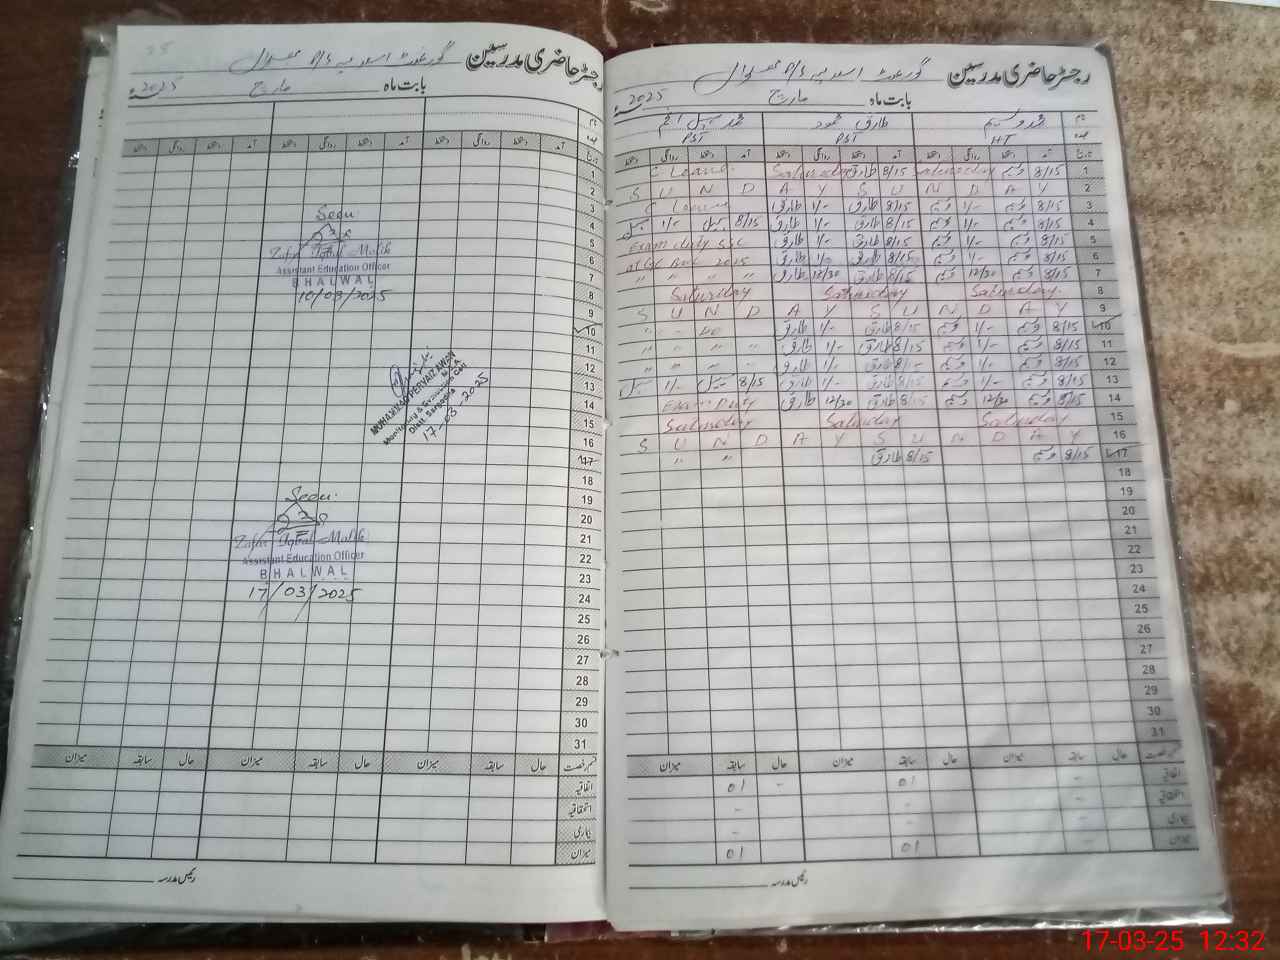 رجسٹر حاضری مدرسین
بابت ماہ مارچ 2025ء
نام
عہدہ
تاریخ آمد دستخط روانگی دستخط آمد دستخط روانگی دستخط آمد دستخط روانگی دستخط
1
2
3
4
5
6
7
8
9
10
11
12
13
14
15
16
17
18
19
20
21
22
23
24
25
26
27
28
29
30
31
Seen
Zafar Iqbal Malik
Assistant Education Officer
BHALWAL
10/03/2025
MUHAMMAD PERVAIZ AWAN
Monitoring & Evaluation Cell
Distt. Sargodha
17-03-2025
Seen
Zafar Iqbal Malik
Assistant Education Officer
BHALWAL
17/03/2025
قسم رخصت حال سابقہ میزان حال سابقہ میزان حال سابقہ میزان
اتفاقیہ
بیماری
میزان
رئیس مدرسہ
رجسٹر حاضری مدرسین
بابت ماہ مارچ 2025ء
نام محمد وسیم طارق محمود
عہدہ HT PST PST
تاریخ آمد دستخط روانگی دستخط آمد دستخط روانگی دستخط آمد دستخط روانگی دستخط
1 8/15 وسیم Saturday 8/15 طارق Saturday C Leave
2 S U N D A Y S U N D A Y
3 8/15 وسیم 1/- وسیم 8/15 طارق 1/- طارق C Leave
4 8/15 وسیم 1/- وسیم 8/15 طارق 1/- طارق 8/15 1/-
5 8/15 وسیم 1/- وسیم 8/15 طارق 1/- طارق Exam duty SSC
6 8/15 وسیم 1/- وسیم 8/15 طارق 1/- طارق 2025
7 8/15 وسیم 12/30 وسیم 8/15 طارق 12/30 طارق " " " "
8 Saturday Saturday Saturday
9 S U N D A Y S U N D A Y
10 8/15 وسیم 1/- وسیم 8/15 طارق 1/- طارق
11 8/15 وسیم 1/- وسیم 8/15 طارق 1/- طارق " " " "
12 8/15 وسیم 1/- وسیم طارق 1/- طارق
13 8/15 وسیم 1/- وسیم 8/15 طارق 1/- طارق 8/15 1/-
14 8/15 وسیم 12/30 وسیم 8/15 طارق 12/30 طارق Exam Duty
15 Saturday Saturday Saturday
16 S U N D A Y S U N D A Y
17 8/15 وسیم 8/15 طارق " "
18
19
20
21
22
23
24
25
26
27
28
29
30
31
حال سابقہ میزان حال سابقہ میزان حال سابقہ میزان
اتفاقیہ - 01 - 01
- - -
بیماری - -
میزان - 01 01
رئیس مدرسہ
17-03-25 12:32